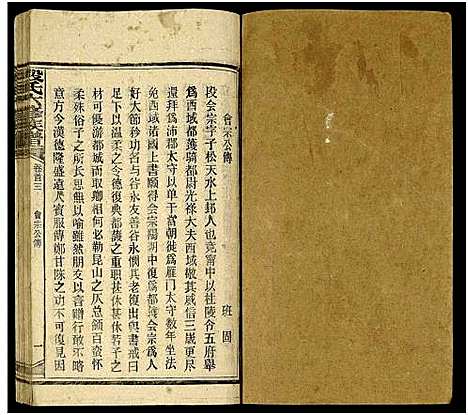 會宗公傳
班固
段會宗字子松天水上邽人也竟甯中以杜陵令五府舉
爲西域都護騎都尉光祿大夫西域敬其威信三歲更盡
還拜爲沛郡太守以單于當朝徙爲雁門太守數年坐法
免西域諸國上書願得會宗陽朔中復爲都護會宗爲人
好大節矜功名與谷永相友善谷永憫其老復出與書戒曰
足下以溫柔之令德復典都護之重職甚休甚休若子之
材可優游都城而取卿相何必勒
昆山之仄總領百蠻懷
柔殊俗子之所長愚無以喻雖然朋友以言贈行敢不略
意方今漢德隆盛遠人賓服傅鄭甘陳之功不可復見因
卷首三
會宗公傳
一